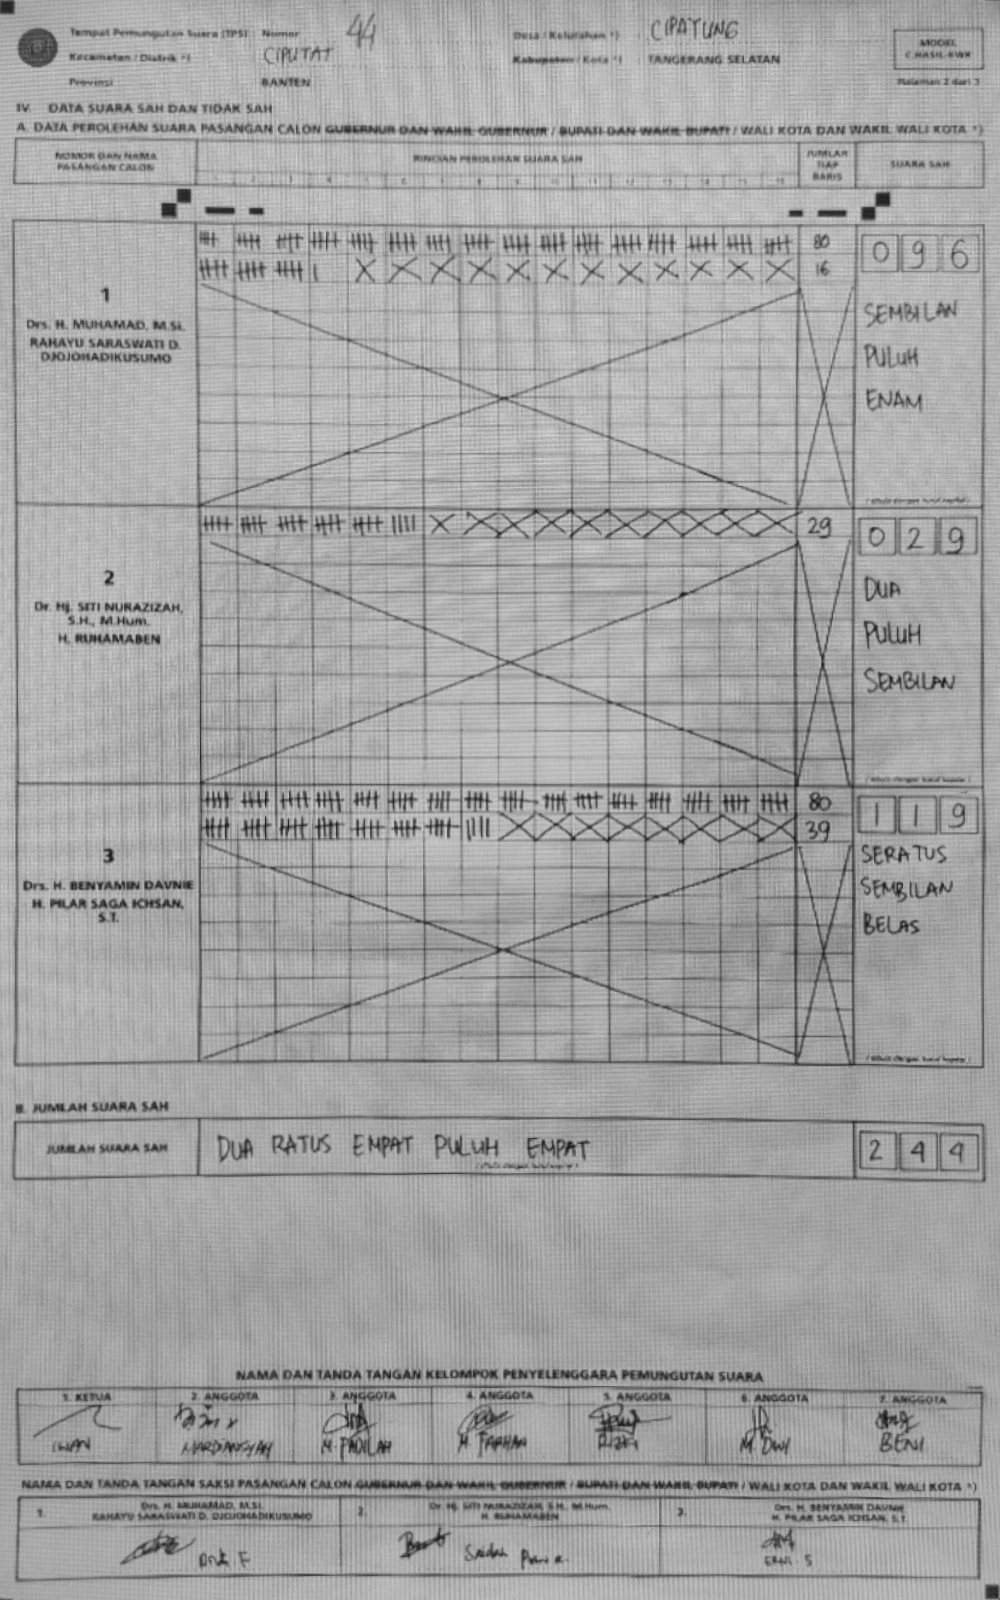 Tempat Pemungutan Suara (TPS) Nomor 44 Desa / Kelurahan *) CIPATUNG
Kecamatan / Distrik *) CIPUTAT Kabupaten / Kota *) TANGERANG SELATAN
Provinsi BANTEN
MODEL
C.HASIL-KWK
Halaman 2 dari 3
IV. DATA SUARA SAH DAN TIDAK SAH
A. DATA PEROLEHAN SUARA PASANGAN CALON GUBERNUR DAN WAKIL GUBERNUR / BUPATI DAN WAKIL BUPATI / WALI KOTA DAN WAKIL WALI KOTA *)
NOMOR DAN NAMA PASANGAN CALON RINCIAN PEROLEHAN SUARA SAH JUMLAH TIAP BARIS SUARA SAH
2 3 4 6 7 8 9 10 11 12 13 14 15 16
1
Drs. H. MUHAMAD, M.Si.
RAHAYU SARASWATI D.
DJOJOHADIKUSUMO
80
16
096
SEMBILAN
PULUH
ENAM
2
Dr. Hj. SITI NURAZIZAH,
S.H., M.Hum.
H. RUHAMABEN
29
029
DUA
PULUH
SEMBILAN
3
Drs. H. BENYAMIN DAVNIE
H. PILAR SAGA ICHSAN,
S.T.
80
39
119
SERATUS
SEMBILAN
BELAS
B. JUMLAH SUARA SAH
JUMLAH SUARA SAH DUA RATUS EMPAT PULUH EMPAT 244
NAMA DAN TANDA TANGAN KELOMPOK PENYELENGGARA PEMUNGUTAN SUARA
1. KETUA 2. ANGGOTA 3. ANGGOTA 4. ANGGOTA 5. ANGGOTA 6. ANGGOTA 7. ANGGOTA
IWAN MARDIANSYAH M. FADILAH M. FARHAN RIZKI M. DWI BENI
NAMA DAN TANDA TANGAN SAKSI PASANGAN CALON GUBERNUR DAN WAKIL GUBERNUR / BUPATI DAN WAKIL BUPATI / WALI KOTA DAN WAKIL WALI KOTA *)
1. Drs. H. MUHAMAD, M.Si. 2. Dr. Hj. SITI NURAZIZAH, S.H., M.Hum. 3. Drs. H. BENYAMIN DAVNIE
RAHAYU SARASWATI D. DJOJOHADIKUSUMO H. RUHAMABEN H. PILAR SAGA ICHSAN, S.T.
ERNI . S